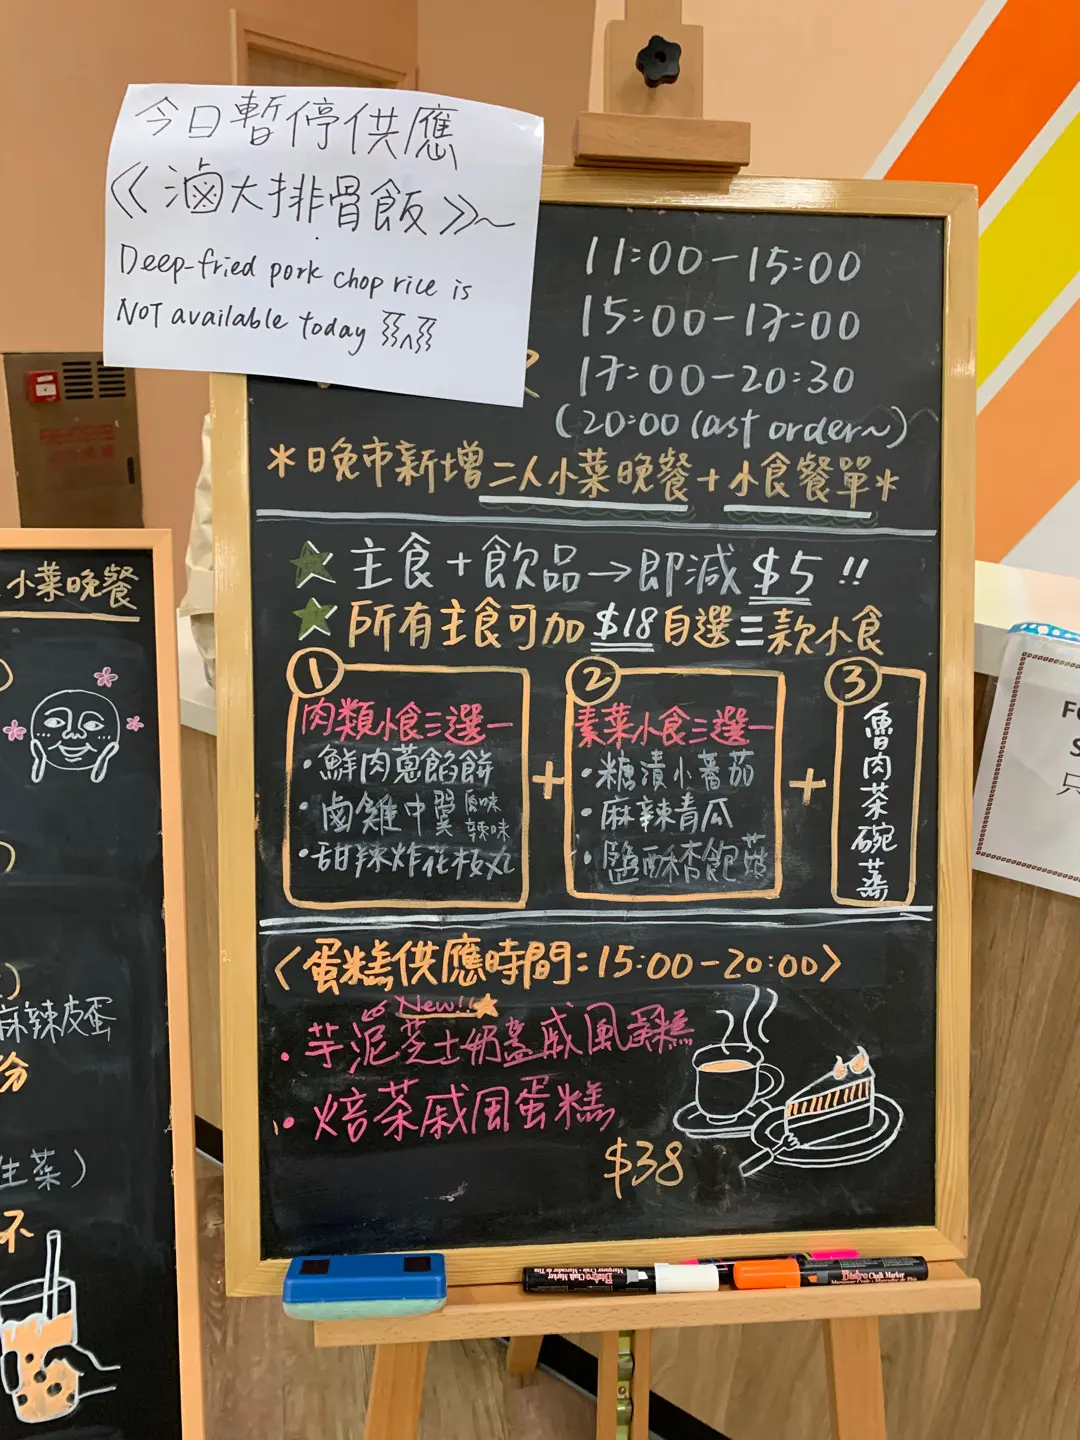 今日暫停供應
《滷大排骨飯》~
Deep-fried pork chop rice is
NOT available today
11:00-15:00
15:00-17:00
17:00-20:30
(20:00 last order~)
*日晚市新增二人小菜晚餐+小食餐單*
主食+飲品→即減$5!!
所有主食可加$18自選三款小食
①
肉類小食三選一
·鮮肉蔥餡餅
·鹵雞中翼 原味 辣味
·甜辣炸花枝丸
+
②
素菜小食三選一
·糖漬小蕃茄
·麻辣青瓜
·鹽酥杏鮑菇
+
③
魯肉茶碗蒸
〈蛋糕供應時間:15:00-20:00〉
New!!
·芋泥芝士奶蓋戚風蛋糕
·焙茶戚風蛋糕
$38
小菜晚餐
麻辣皮蛋
份
生菜)
不
Bistro Chalk Marker
Bistro Chalk Marker
只